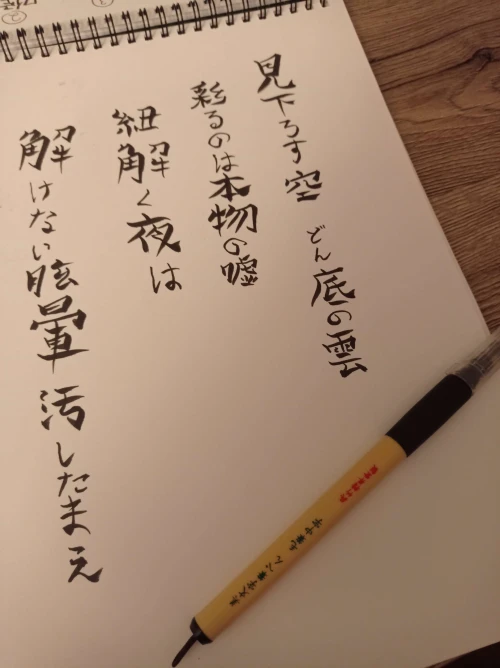 見下ろす空 どん底の雲
彩るのは本物の嘘
紐解く夜は
解けない眩暈 汚したまえ